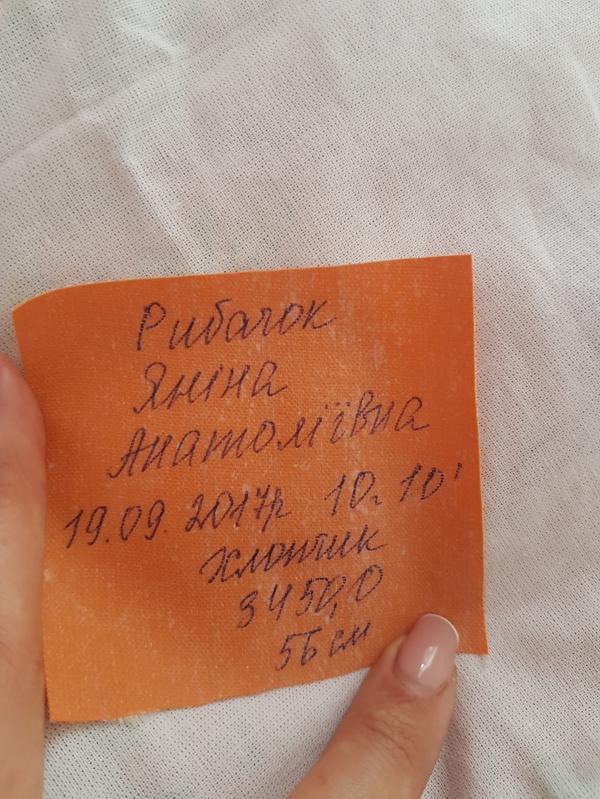 Рибачок
Яніна
Анатоліївна
19.09.2017р 10г 10'
Хлопчик
3450,0
56 см